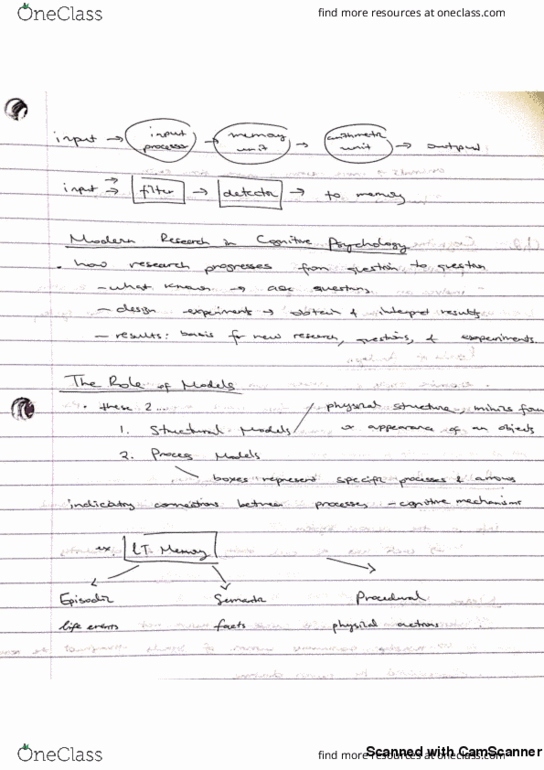 OneClass find more resources at oneclass.com
input → input processor → memory unit → arithmetic unit → output
input → → filter → detector → to memory
Modern Research in Cognitive Psychology
• how research progresses from question to question
– what known → ask questions
– design experiment → obtain & interpret results
– results: basis for new research, questions, & experiments.
The Role of Models
• these 2...
physical structure mimics form
1. Structural Models or appearance of an objects
2. Process Models
boxes represent specific processes & arrows
indicating connections between processes – cognitive mechanisms
ex. LT Memory
Episodic Semantic Procedural
life events facts physical actions
OneClass find more resources at oneclass.com
Scanned with CamScanner